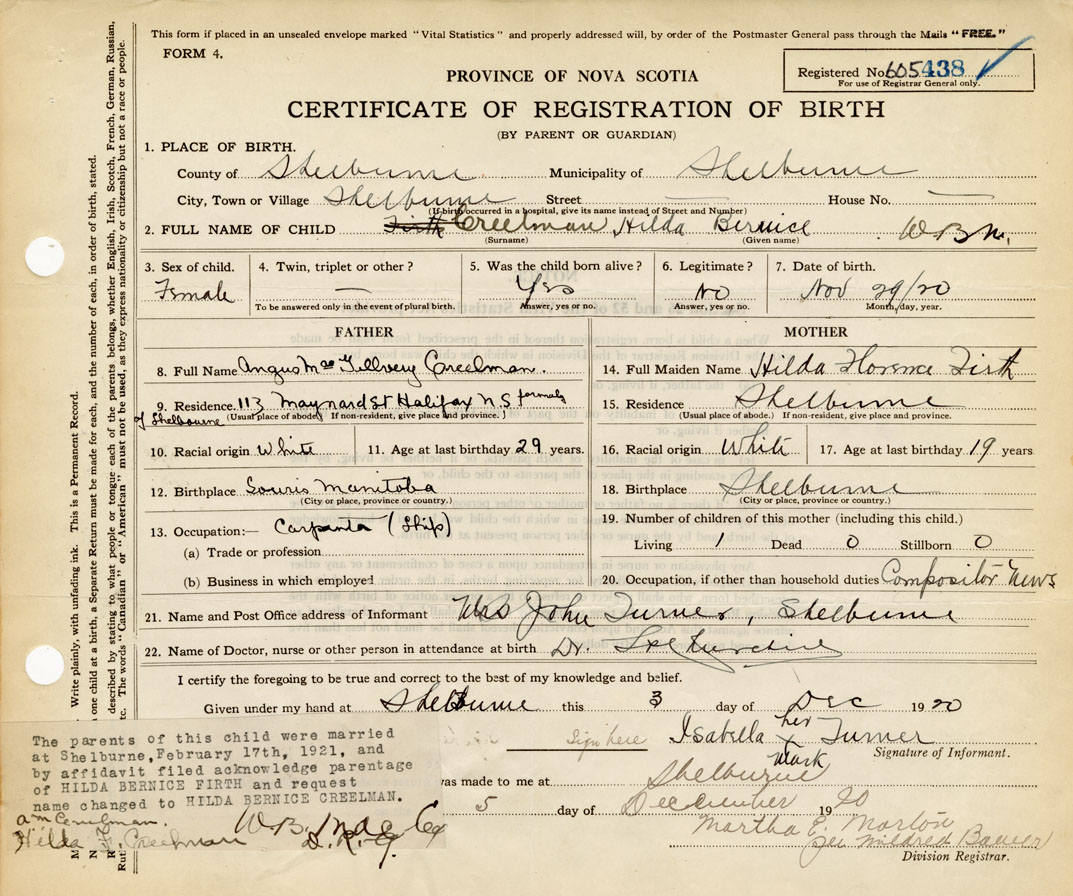 This form if placed in an unsealed envelope marked "Vital Statistics" and properly addressed will, by order of the Postmaster General pass through the Mails "FREE."
FORM 4.
Registered No. 605438
For use of Registrar General only.
PROVINCE OF NOVA SCOTIA
CERTIFICATE OF REGISTRATION OF BIRTH
(BY PARENT OR GUARDIAN)
1. PLACE OF BIRTH.
County of Shelburne Municipality of Shelburne
City, Town or Village Shelburne Street House No.
(If birth occurred in a hospital, give its name instead of Street and Number)
2. FULL NAME OF CHILD Firth Creelman Hilda Bernice W.B.M.
(Surname) (Given name)
3. Sex of child. 4. Twin, triplet or other? 5. Was the child born alive? 6. Legitimate? 7. Date of birth.
Female — Yes No Nov 29/20
To be answered only in the event of plural birth. Answer, yes or no. Answer, yes or no. Month, day, year.
FATHER
8. Full Name Angus Mac Creelman.
9. Residence. 113 Maynard St Halifax N.S formaly
of Shelbourne (Usual place of abode.) If non-resident, give place and province.
10. Racial origin White 11. Age at last birthday 29 years.
12. Birthplace Souris Manitoba
(City or place, province or country.)
13. Occupation:— Carpenta (Ship)
(a) Trade or profession
(b) Business in which employed
MOTHER
14. Full Maiden Name Hilda Florence Firth
15. Residence Shelburne
(Usual place of abode.) If non-resident, give place and province.
16. Racial origin White 17. Age at last birthday 19 years
18. Birthplace Shelburne
(City or place, province or country.)
19. Number of children of this mother (including this child.)
Living 1 Dead 0 Stillborn 0
20. Occupation, if other than household duties Compositor News
21. Name and Post Office address of Informant Mrs John Turner, Shelburne
22. Name of Doctor, nurse or other person in attendance at birth Dr.
I certify the foregoing to be true and correct to the best of my knowledge and belief.
Given under my hand at Shelburne this 3 day of Dec 1920
Sign here Isabella her x mark Turner
Signature of Informant.
was made to me at Shelburne
5 day of December 1920
Martha E. Morton
per Mildred Bower
Division Registrar.
The parents of this child were married
at Shelburne, February 17th, 1921, and
by affidavit filed acknowledge parentage
of HILDA BERNICE FIRTH and request
name changed to HILDA BERNICE CREELMAN.
a m Creelman.
Hilda F. Creelman
D.R.G.
Write plainly, with unfading ink. This is a Permanent Record.
one child at a birth, a Separate Return must be made for each, and the number of each, in order of birth, stated.
described by stating to what people or tongue each of the parents belongs, whether English, Irish, Scotch, French, German, Russian,
The words "Canadian" or "American" must not be used, as they express nationality or citizenship but not a race or people.